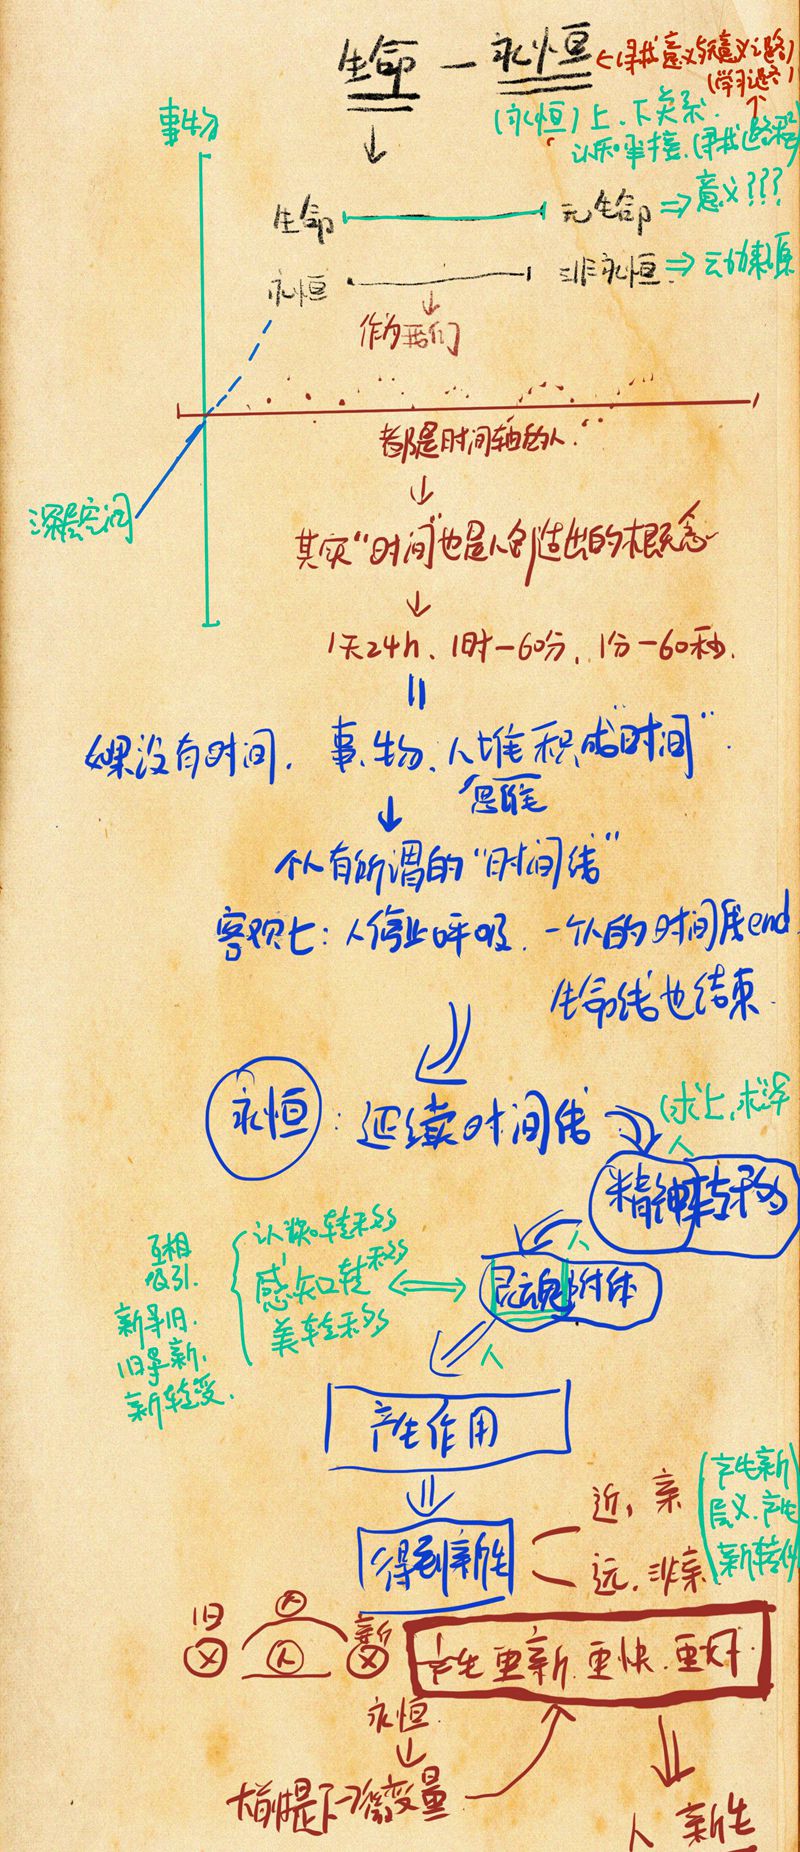 生命 — 永恒
←(寻找意义与意义之路)
(学习之路)
事物
(永恒) 上、下关系.
认知的衔接.
生命 无生命 ⇒ 意义???
永恒 非永恒. ⇒
作为我们
都是时间轴的人.
深层空间
其实"时间"也是人创造出的概念
1天24h、1时—60分、1分—60秒.
如果没有时间. 事.物.人堆积成"时间".
思维
个人有所谓的"时间线"
客观上: 人停止呼吸. 一个人的时间线end.
生命线也结束.
永恒 : 延续时间线
(求上,求学
人
精神转移
人
灵魂附体
互相
吸引.
新寻旧.
旧寻新.
新转变.
认知转移
感知转移
美转移
人
产生作用
得到新生
近, 亲
远. 非亲
产生新
层义. 产生
新转化
旧 义
人
人
新 义
产生更新.更快.更好.
永恒
大前提是下一个微变量
人 新生